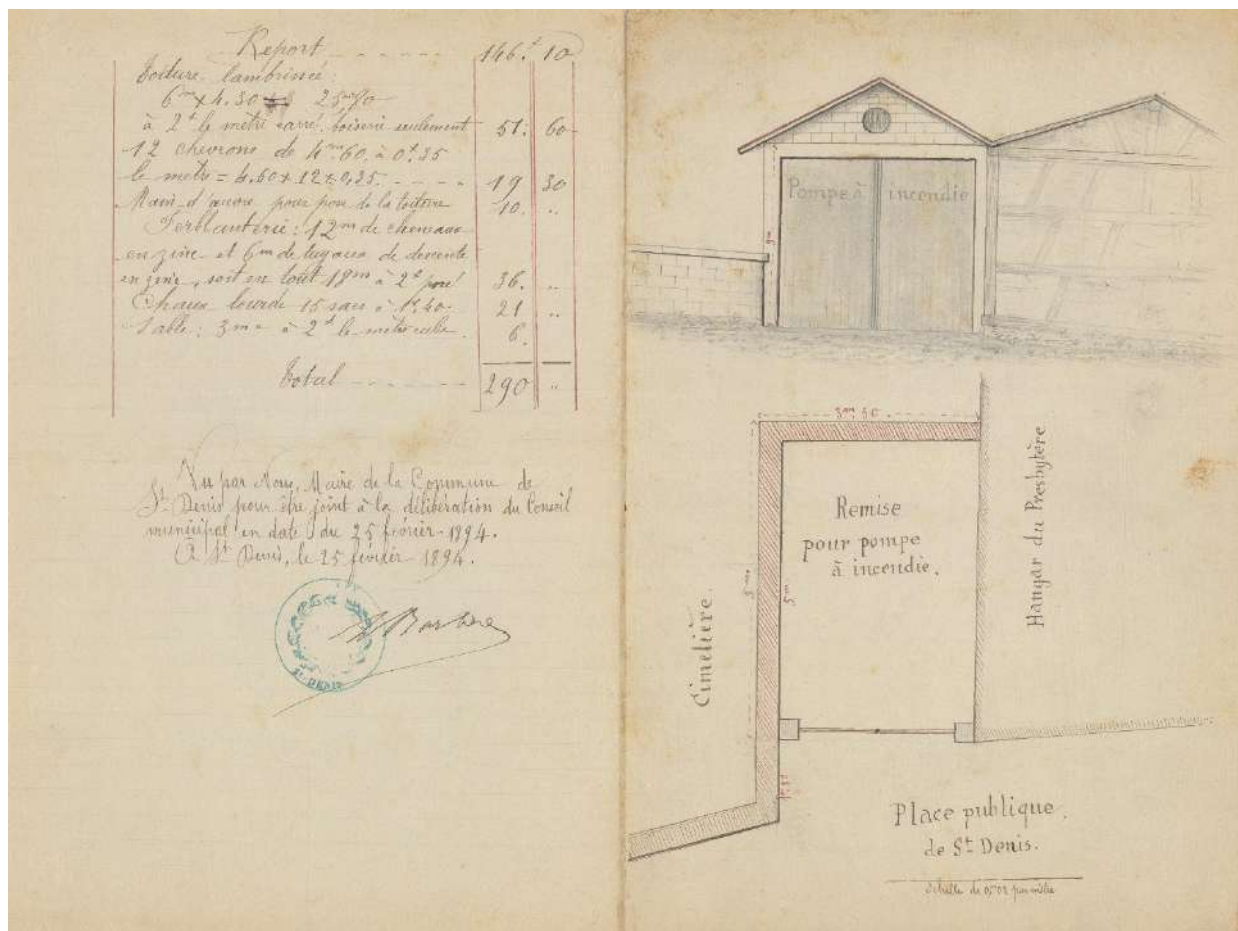 Report 146.f 10
Toiture lambrissée:
6m x 4.30 25m70
à 2f le mètre carré, boiserie seulement 51. 60
12 chevrons de 4m.60 à 0f.35
le mètre = 4.60 x 12 x 0,35 19 30
Main-d'œuvre pour pose de la toiture 10. "
Ferblanterie: 12m de cheneaux
en zinc et 6m de tuyaux de descente
en zinc, soit en tout 18m à 2f posé 36. "
Chaux lourde 15 sacs à 1f.40 21 "
Sable: 3m à 2f le mètre cube. 6.
Total 290 "
Vu par Nous, Maire de la Commune de
St Denis pour être joint à la délibération du Conseil
municipal en date du 25 février 1894.
A St Denis, le 25 février 1894.
ST DENIS
Pompe à incendie
3m
3m.50
Cimetière.
5m
5m
Remise
pour pompe
à incendie.
Hangar du Presbytère
Place publique
de St Denis.
Echelle de 0m02 par mètre